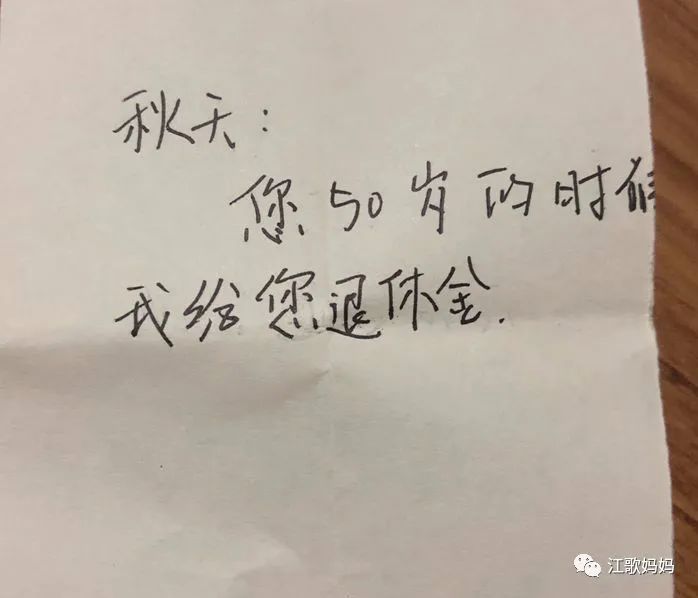 秋天：
您50岁的时候
我给您退休金.
江歌妈妈